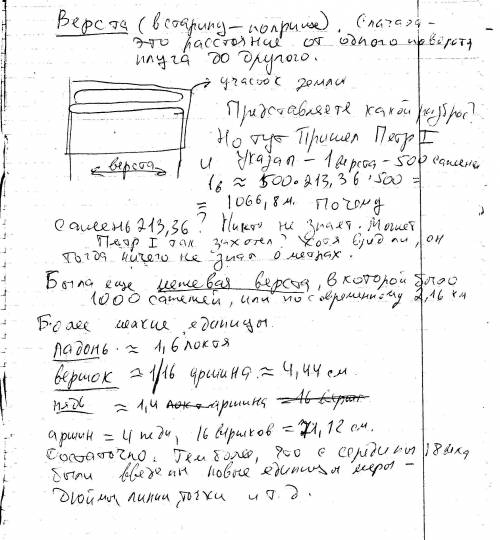 Верста (в старину – поприще). Сначала –
это расстояние от одного поворота
плуга до другого.
участок земли
Представляете какой разброс?
Но тут пришел Петр I
верста
и указал – 1 верста – 500 сажень
1в ≈ 500·213,36·500 =
= 1066,8 м. Почему
сажень 213,36? Никто не знает. Может
Петр I так захотел? Хотя вряд ли, он
тогда ничего не знал о метрах.
Была еще межевая верста, в которой было
1000 саженей, или по современному 2,16 км
Более мелкие единицы.
Ладонь ≈ 1,6 локтя
вершок ≈ 1/16 аршина ≈ 4,44 см.
пядь ≈ 1,4 аршина
аршин = 4 пяди, 16 вершков = 71,12 см.
Достаточно. Тем более, что с середины 18 века
были введены новые единицы меры –
Дюймы, линии, точки и т.д.